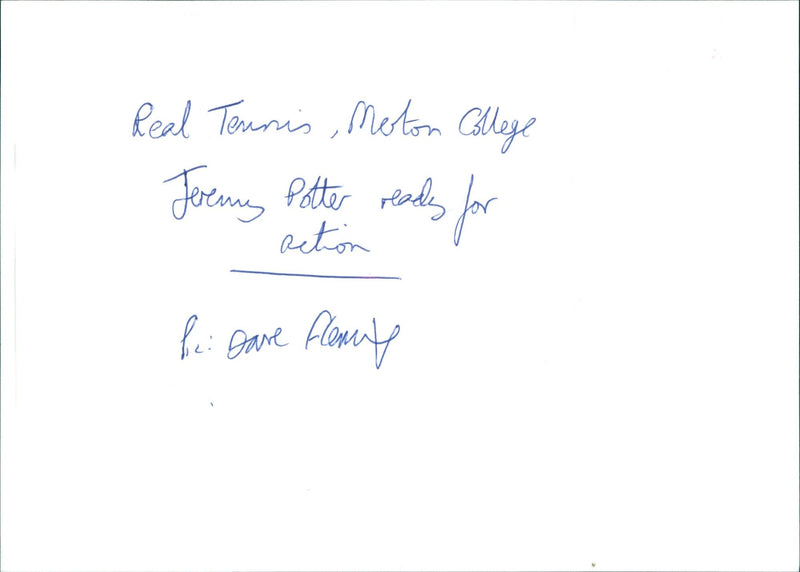 Real Tennis, Merton College
Jeremy Potter ready for
action
Pic: Dave Fleming